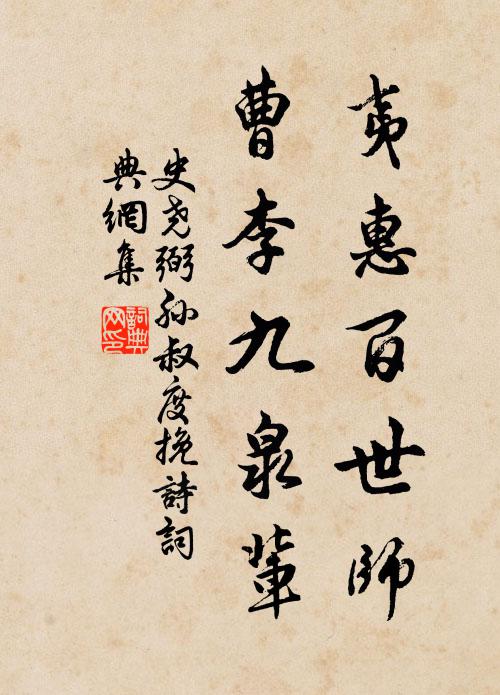 夷惠百世師
曹李九泉輩
史堯弼孫叔度挽詩詞
典網集
詞典網印